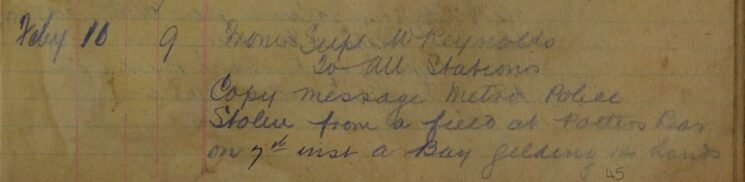 Feby 10 9 From Supt McReynolds
To All Stations
Copy message Metro Police
Stolen from a field at Potters Bar
on 7th inst a Bay gelding 14 hands
45